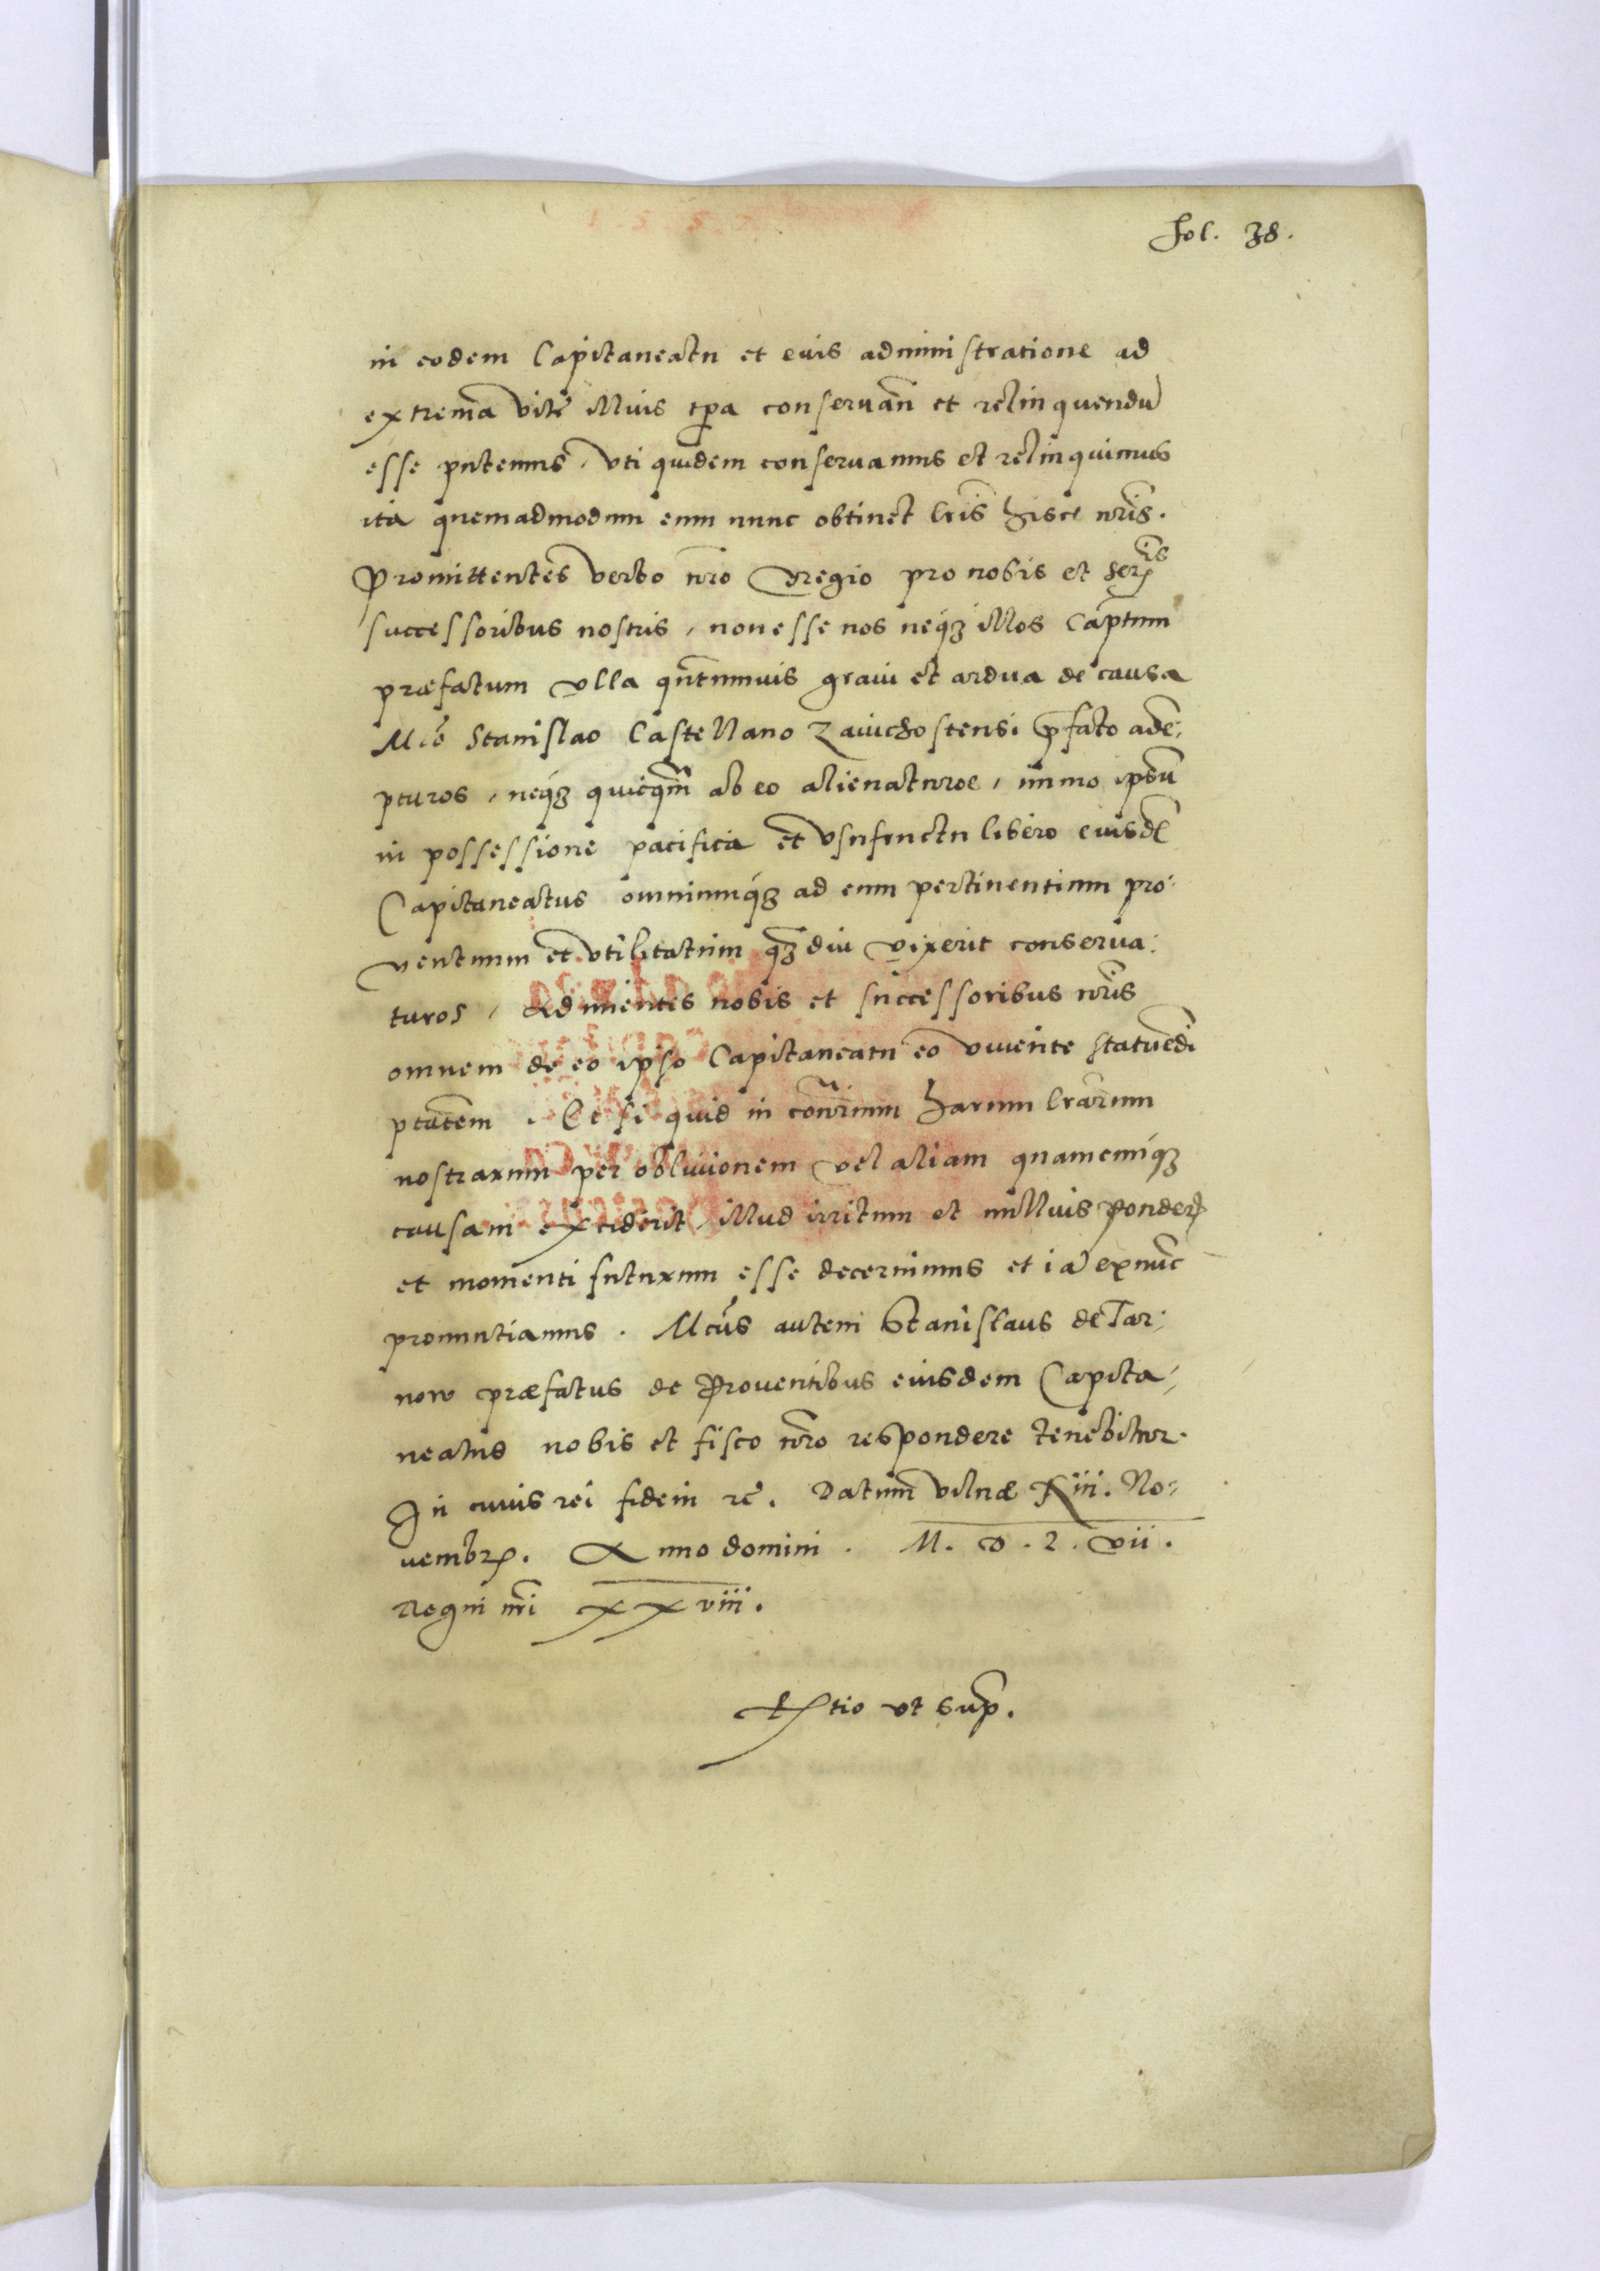 fol. 38.
in eodem Capitaneatu et eius administratione ad
extrema vitę illius tpa conseruan̄ et relinquendū
esse putemus, vti quidem conseruamus et relinquimus
ita quemadmodum eum nunc obtinet lris hisce nr̄is.
Promittentes verbo nr̄o regio pro nobis et serꝫis
successoribus nostris, non esse nos neqꝫ illos Captum
præfatum vlla qntumuis graui et ardua de causa
Mco Stanislao Castellano Zauichostensi p̄fato ade,
pturos, neqꝫ quicqm̄ ab eo alienaturos, immo ipsū
in possessione pacifica et vsufructu libero eiusdē
Capitaneatus omniumqꝫ ad eum pertinentium pro,
uentuum et vtilitatum qꝫdiu vixerit conserua,
turos, Adimentes nobis et successoribus nr̄is
omnem de eo ipso Capitaneatu eo viuente statuēdi
ptatem. Et si quid in contrarium harum lrarum
nostrarum per obliuionem vel aliam quamcunqꝫ
causam exciderit, illud irritum et nullius ponderꝭ
et momenti futurum esse decernimus et iā exnūc
pronuntiamus. Mcus autem Stanislaus de Tar,
now præfatus de Prouentibus eiusdem Capita,
neatus nobis et fisco nr̄o respondere tenebitur.
In cuius rei fidem rē. Datum Vilnæ Xiii. No,
uembrꝭ. Anno domini. M. D. L. vii.
Regni nr̄i XXviii.
Rtio vt sup.